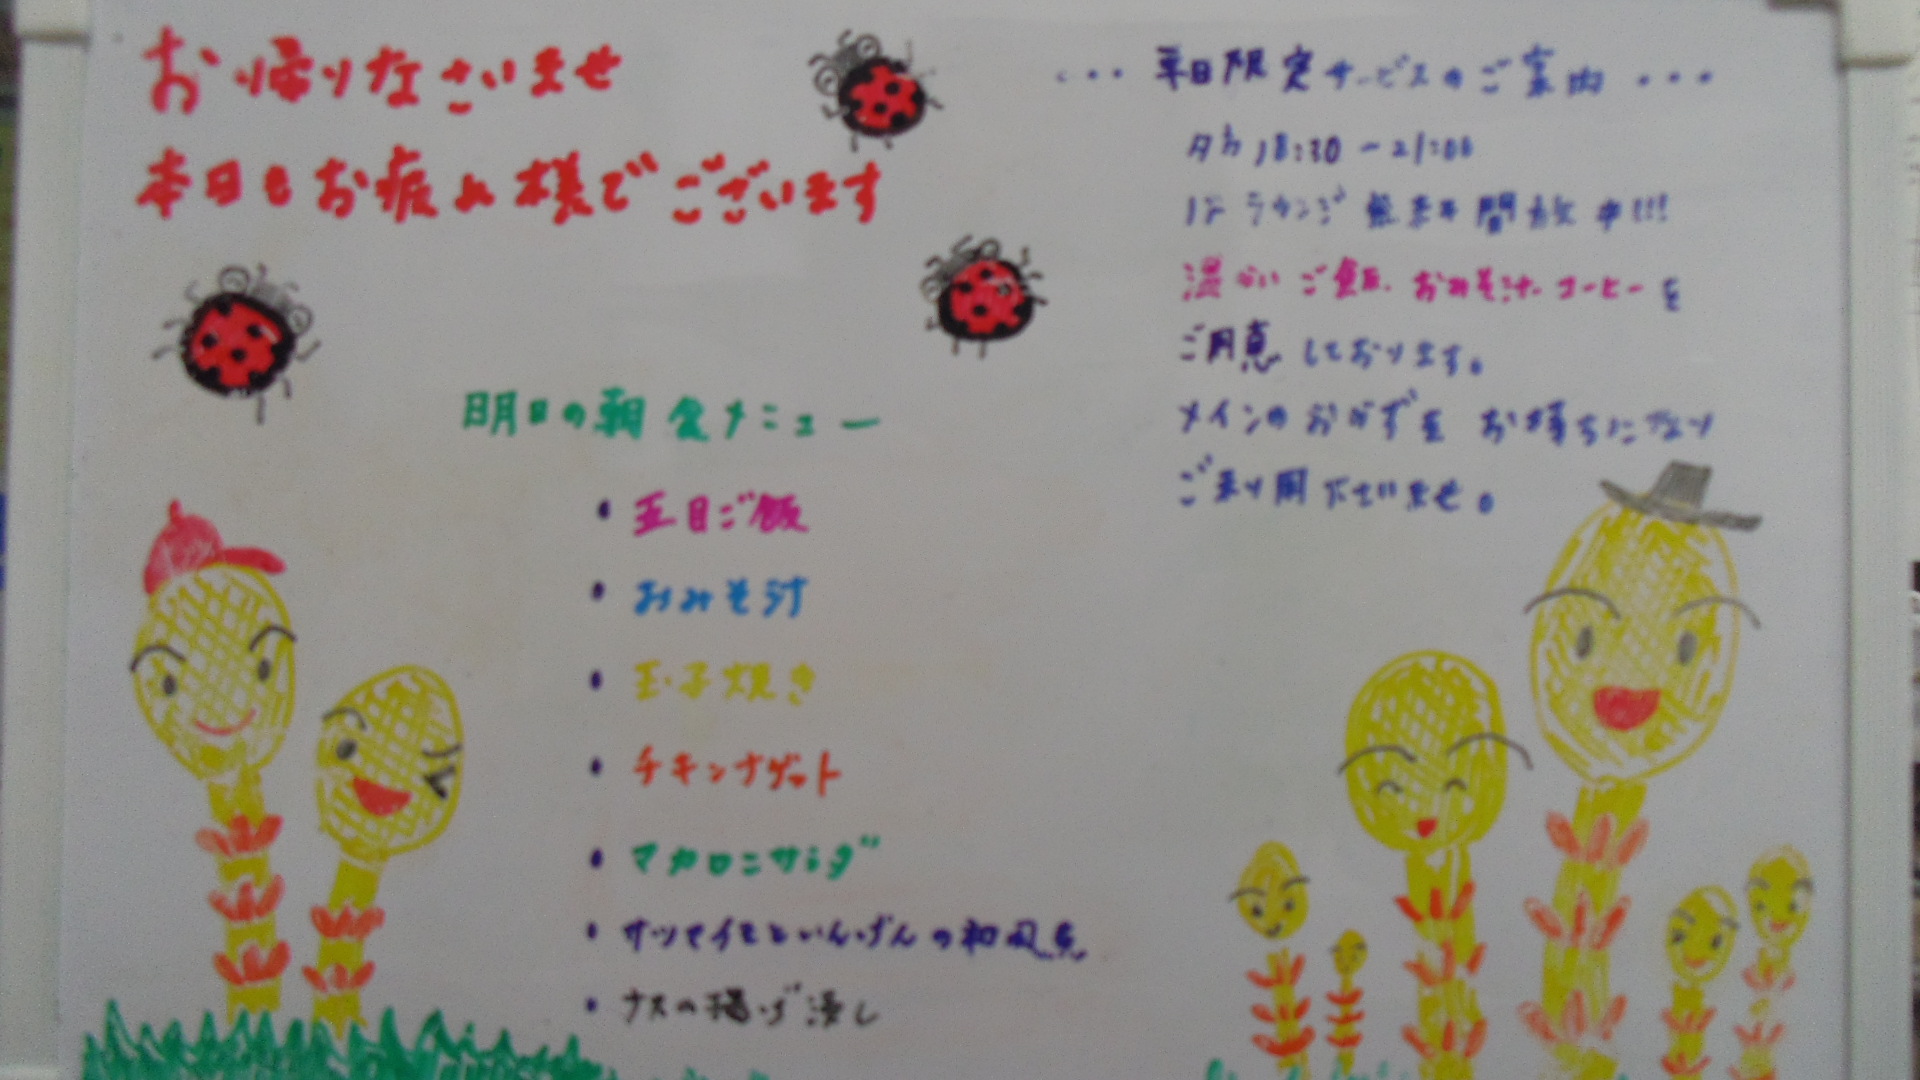 お帰りなさいませ
本日もお疲れ様でございます
明日の朝食メニュー
・五目ご飯
・おみそ汁
・玉子焼き
・チキンナゲット
・マカロニサラダ
・サツマイモといんげんの和風煮
・ナスの揚げ浸し
・・・平日限定サービスのご案内・・・
夕方18:30-21:00
1Fラウンジ無料開放中!!!
温かいご飯.おみそ汁.コーヒーを
ご用意しております。
メインのおかずをお持ちになり
ご利用下さいませ。